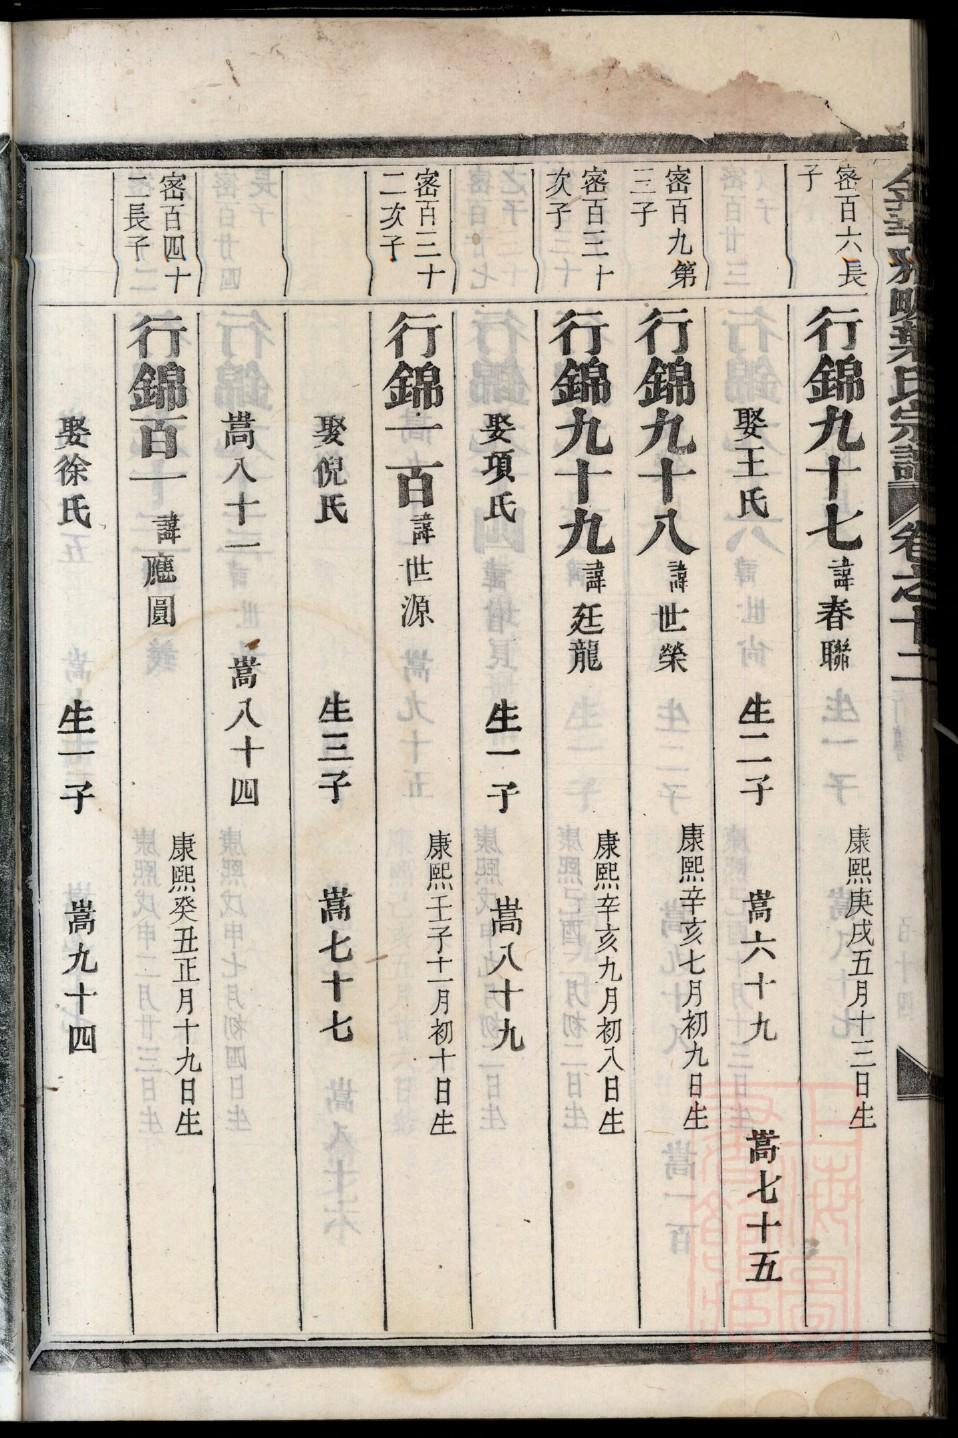 葉氏宗譜 卷之十二
密百六長
子
行錦九十七 諱春聯 康熙庚戌五月十三日生
娶王氏 生二子 嵩六十九 嵩七十五
密百九第
三子
行錦九十八 諱世榮 康熙辛亥七月初九日生
密百三十
次子
行錦九十九 諱廷龍 康熙辛亥九月初八日生
娶項氏 生一子 嵩八十九
密百三十
二次子
行錦一百 諱世源 康熙壬子十一月初十日生
娶倪氏 生三子 嵩七十七
嵩八十一 嵩八十四
密百四十
二長子
行錦百一 諱應圓 康熙癸丑正月十九日生
娶徐氏 生一子 嵩九十四